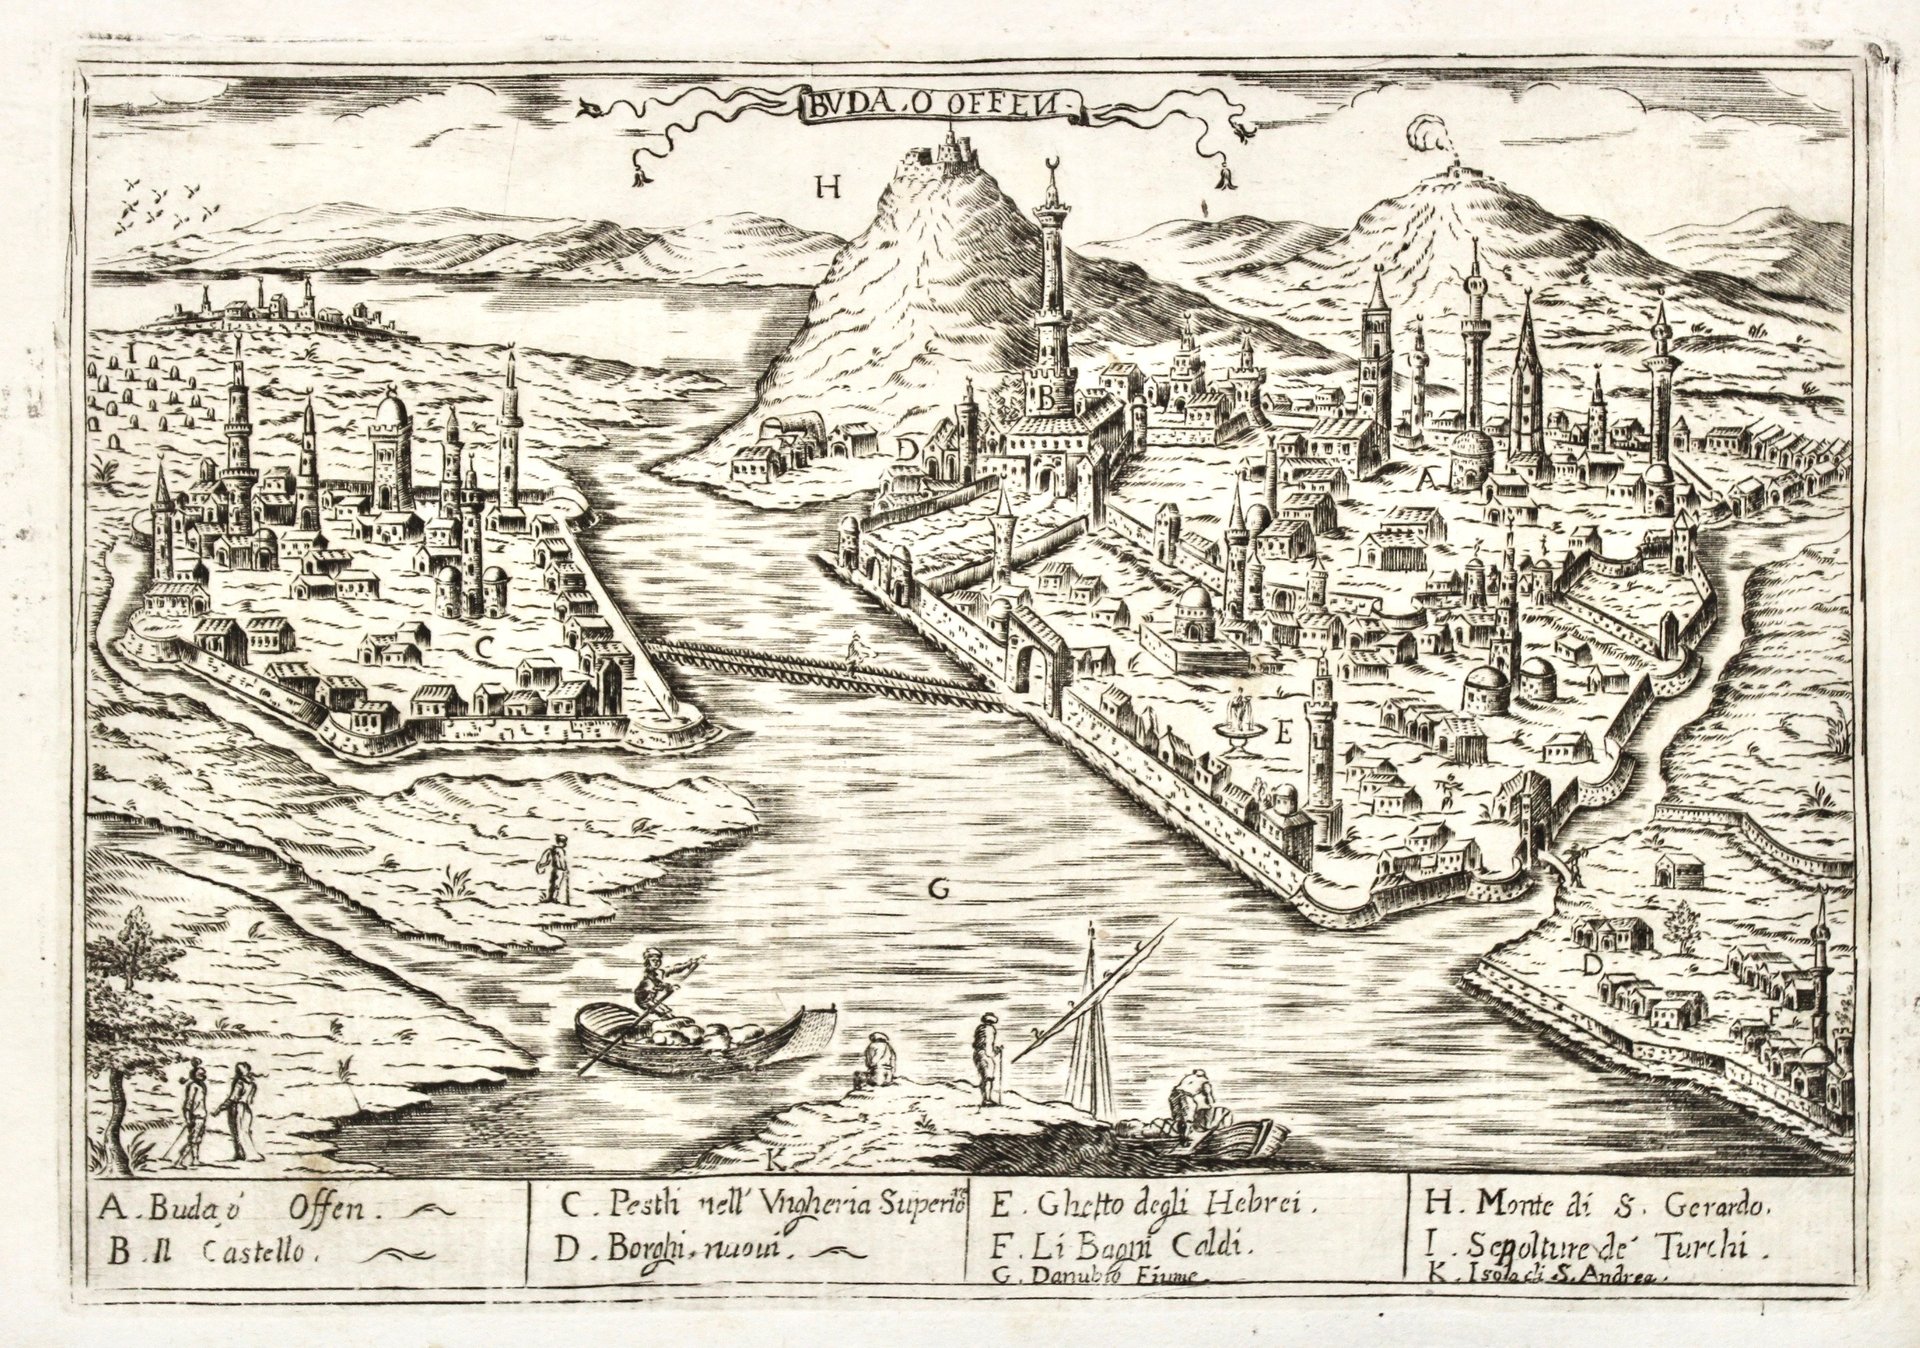 BVDA, O OFFEN.
H
I
B
D
A
C
E
G
D
F
K
A. Buda, ó Offen.
B. Il Castello.
C. Pesth nell' Vngheria Superiore
D. Borghi nuoui.
E. Ghetto degli Hebrei.
F. Li Bagni Caldi.
G. Danubio Fiume.
H. Monte di S. Gerardo.
I. Sepolture de' Turchi.
K. Isola di S. Andrea.